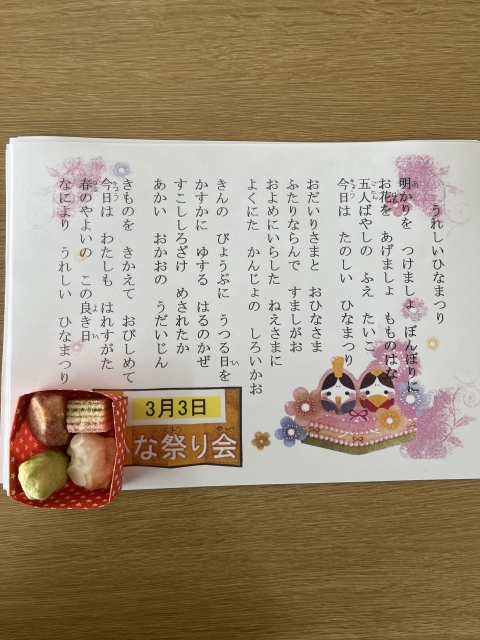 うれしいひなまつり
明かりを つけましょ ぼんぼりに
お花を あげましょ もものはな
五人ばやしの ふえ たいこ
今日は たのしい ひなまつり
おだいりさまと おひなさま
ふたりならんで すましがお
およめにいらした ねえさまに
よくにた かんじょの しろいかお
きんの びょうぶに うつる日を
かすかに ゆする はるのかぜ
すこししろざけ めされたか
あかい おかおの うだいじん
きものを きかえて おびしめて
今日は わたしも はれすがた
春のやよいの この良き日
なにより うれしい ひなまつり
3月3日
な祭り会